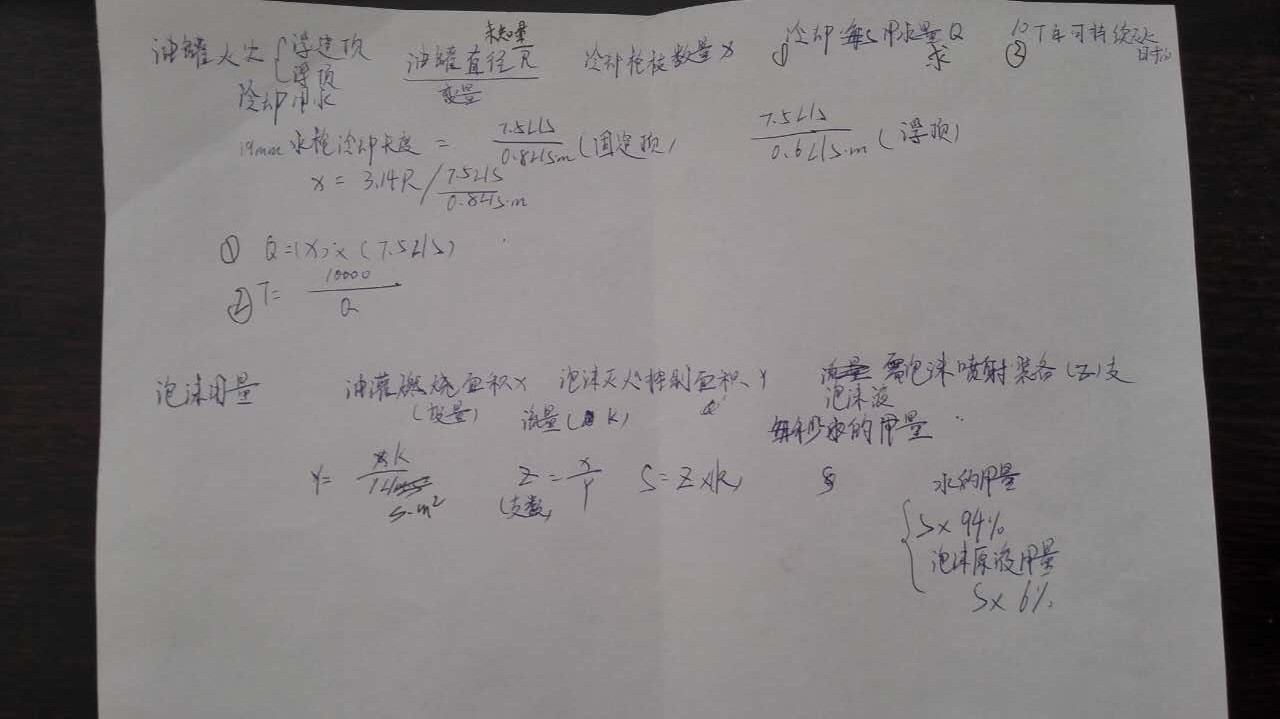 油罐火灾 { 浮定顶 浮顶
未知量
油罐直径R
变量
冷却枪枝数量x
① 冷却每s用水量Q
求
② 10T车可持续
冷却用水
19mm 水枪冷却长度 = 7.5L/s / 0.8L/s·m (固定顶) 7.5L/s / 0.6L/s·m (浮顶)
x = 3.14R / 7.5L/s / 0.8L/s·m
① Q=(x)×(7.5L/s)
② T= 10000 / Q
泡沫用量 油灌燃烧面积x 泡沫灭火控制面积Y 需泡沫喷射装备(Z)支
(变量) 流量(k) 泡沫液
每秒的用量
Y= k / 1L/s·m² Z = x / Y S=Z×k, S 水的用量
(支数)
{ S×94%
泡沫原液用量
S×6%